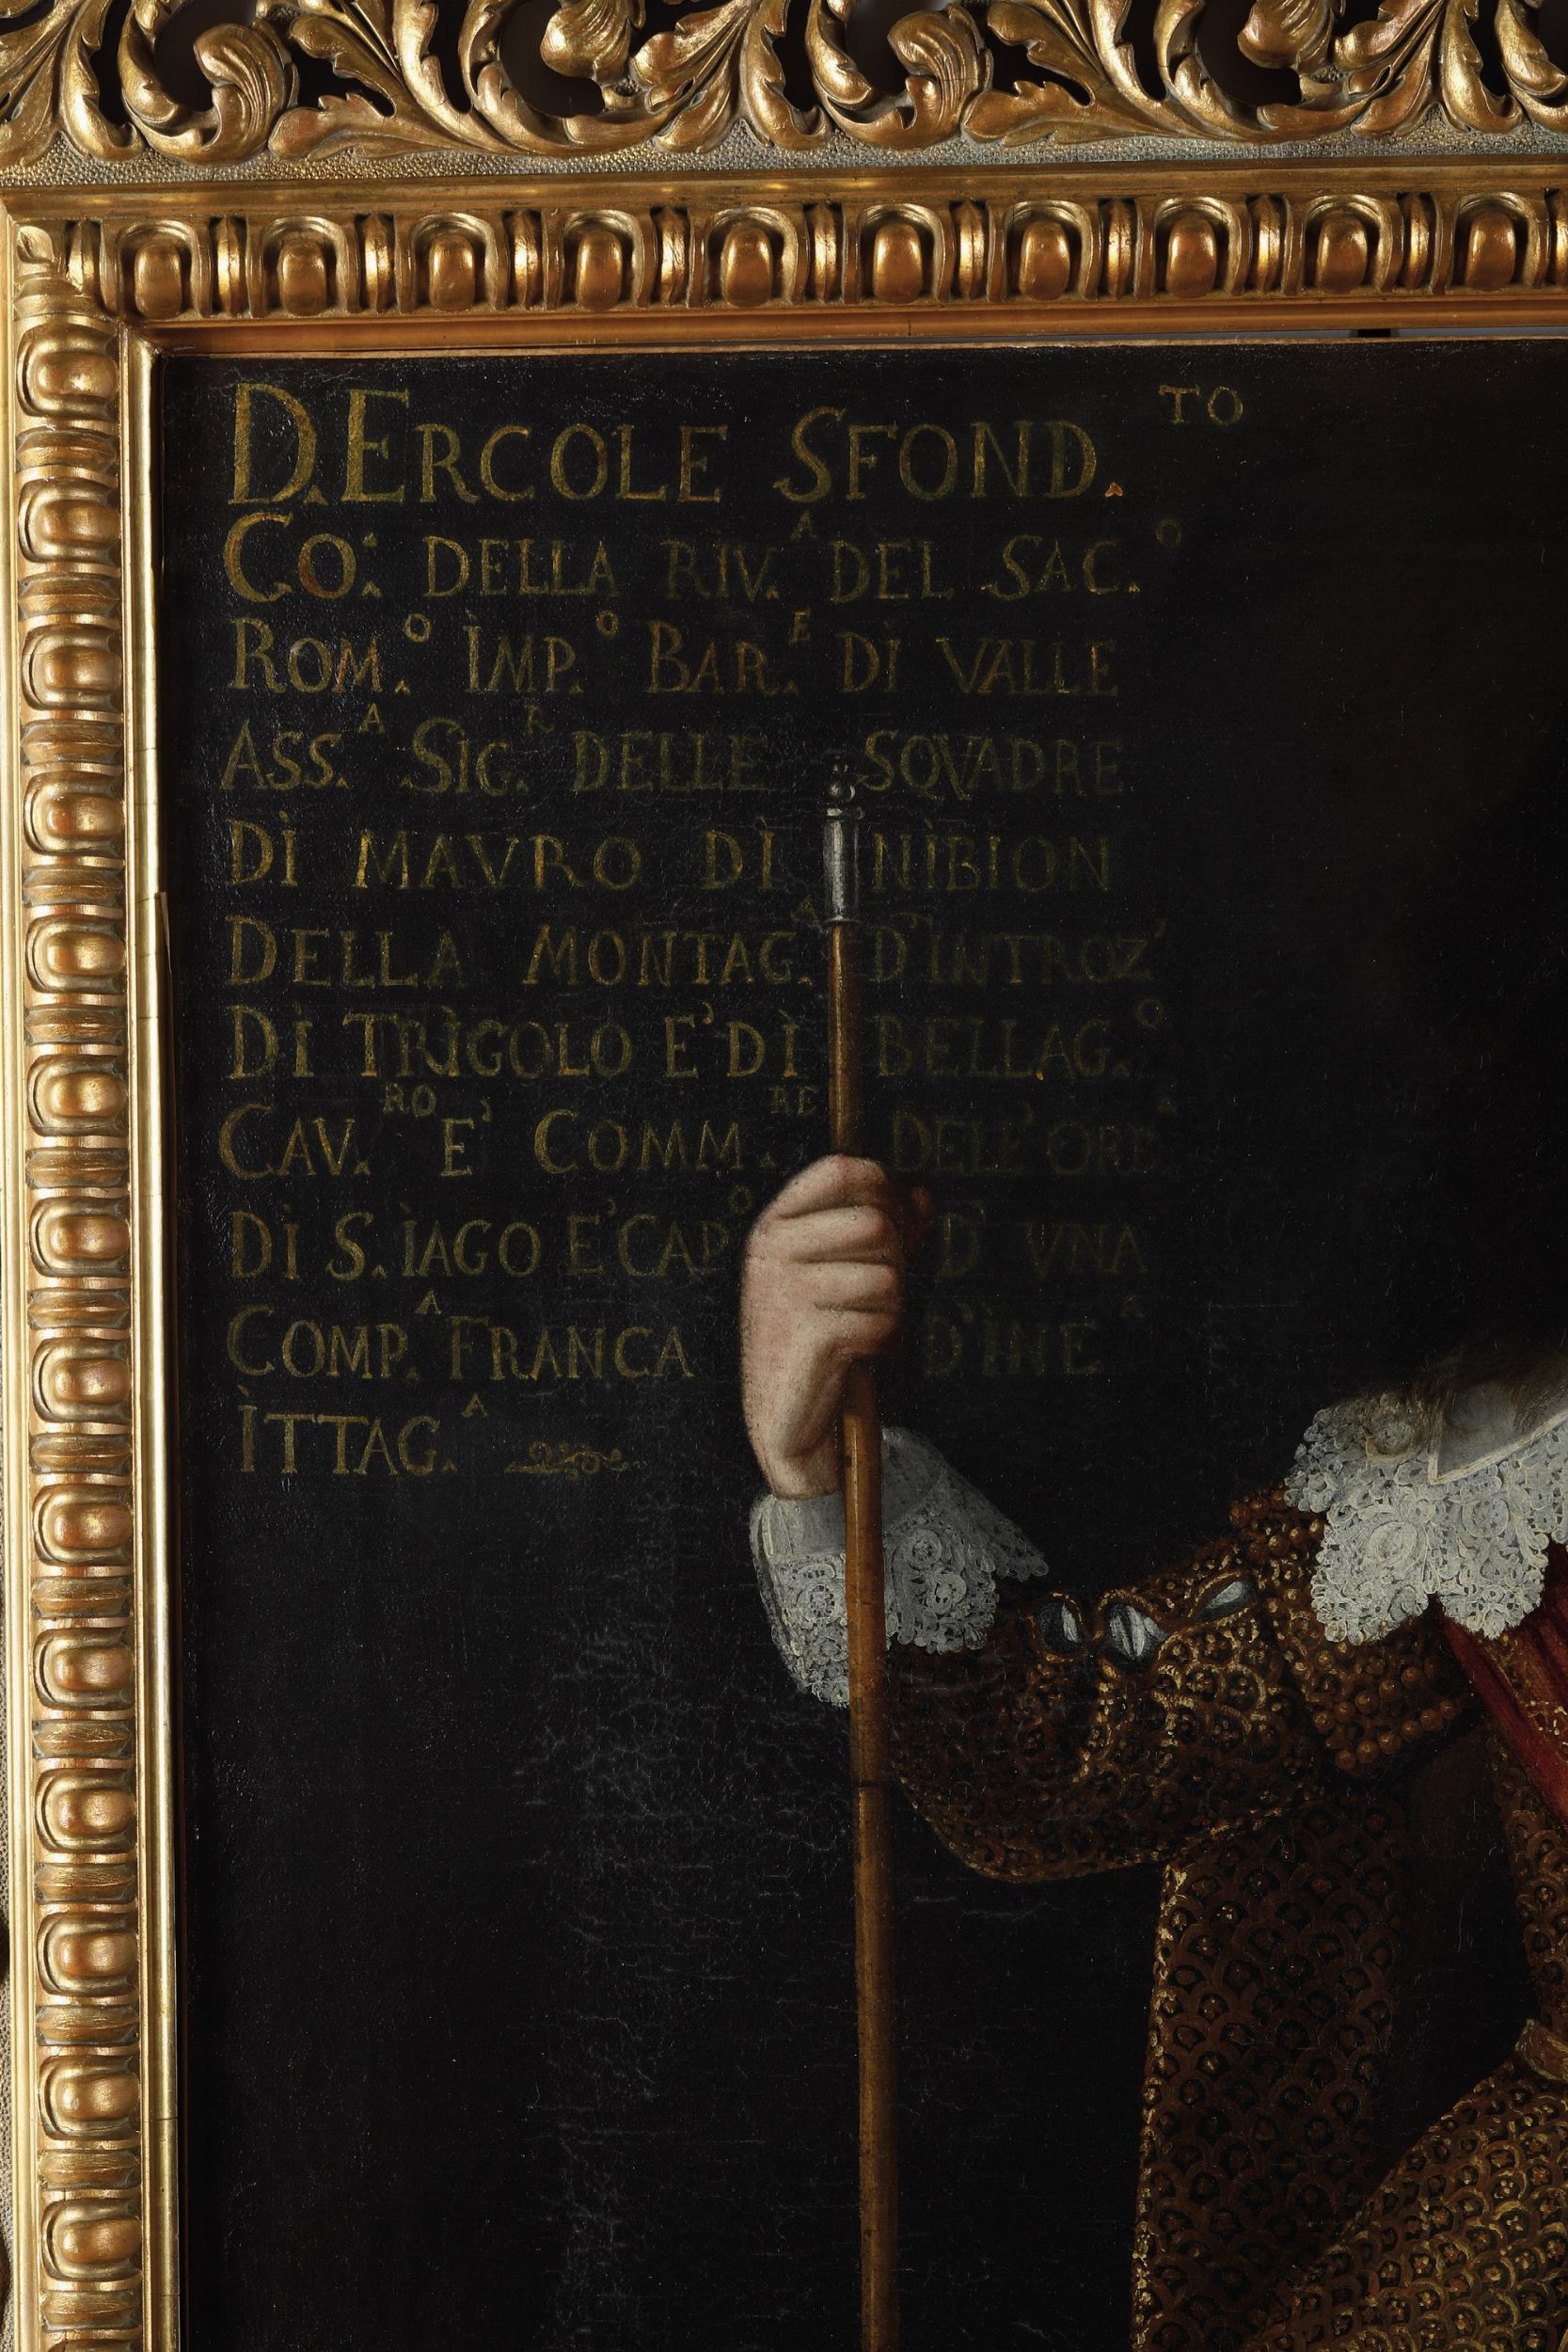 D. ERCOLE SFOND.TO
CO: DELLA RIV.A DEL SAC.O
ROM.O ÌMP.O BAR.E DÌ VALLE
ASS.A SIG.R DELLE SQVADRE
DÌ MAVRO DÌ NÌBIÒN
DELLA MONTAG.A D'INTROZ'
DÌ TRÌGOLO E' DÌ BELLAG.O
CAV.RO E' COMM.RE DELL'
DÌ S. ÌAGO E' CAP.O D' VNA
COMP.A FRANCA
ÌTTAG.A